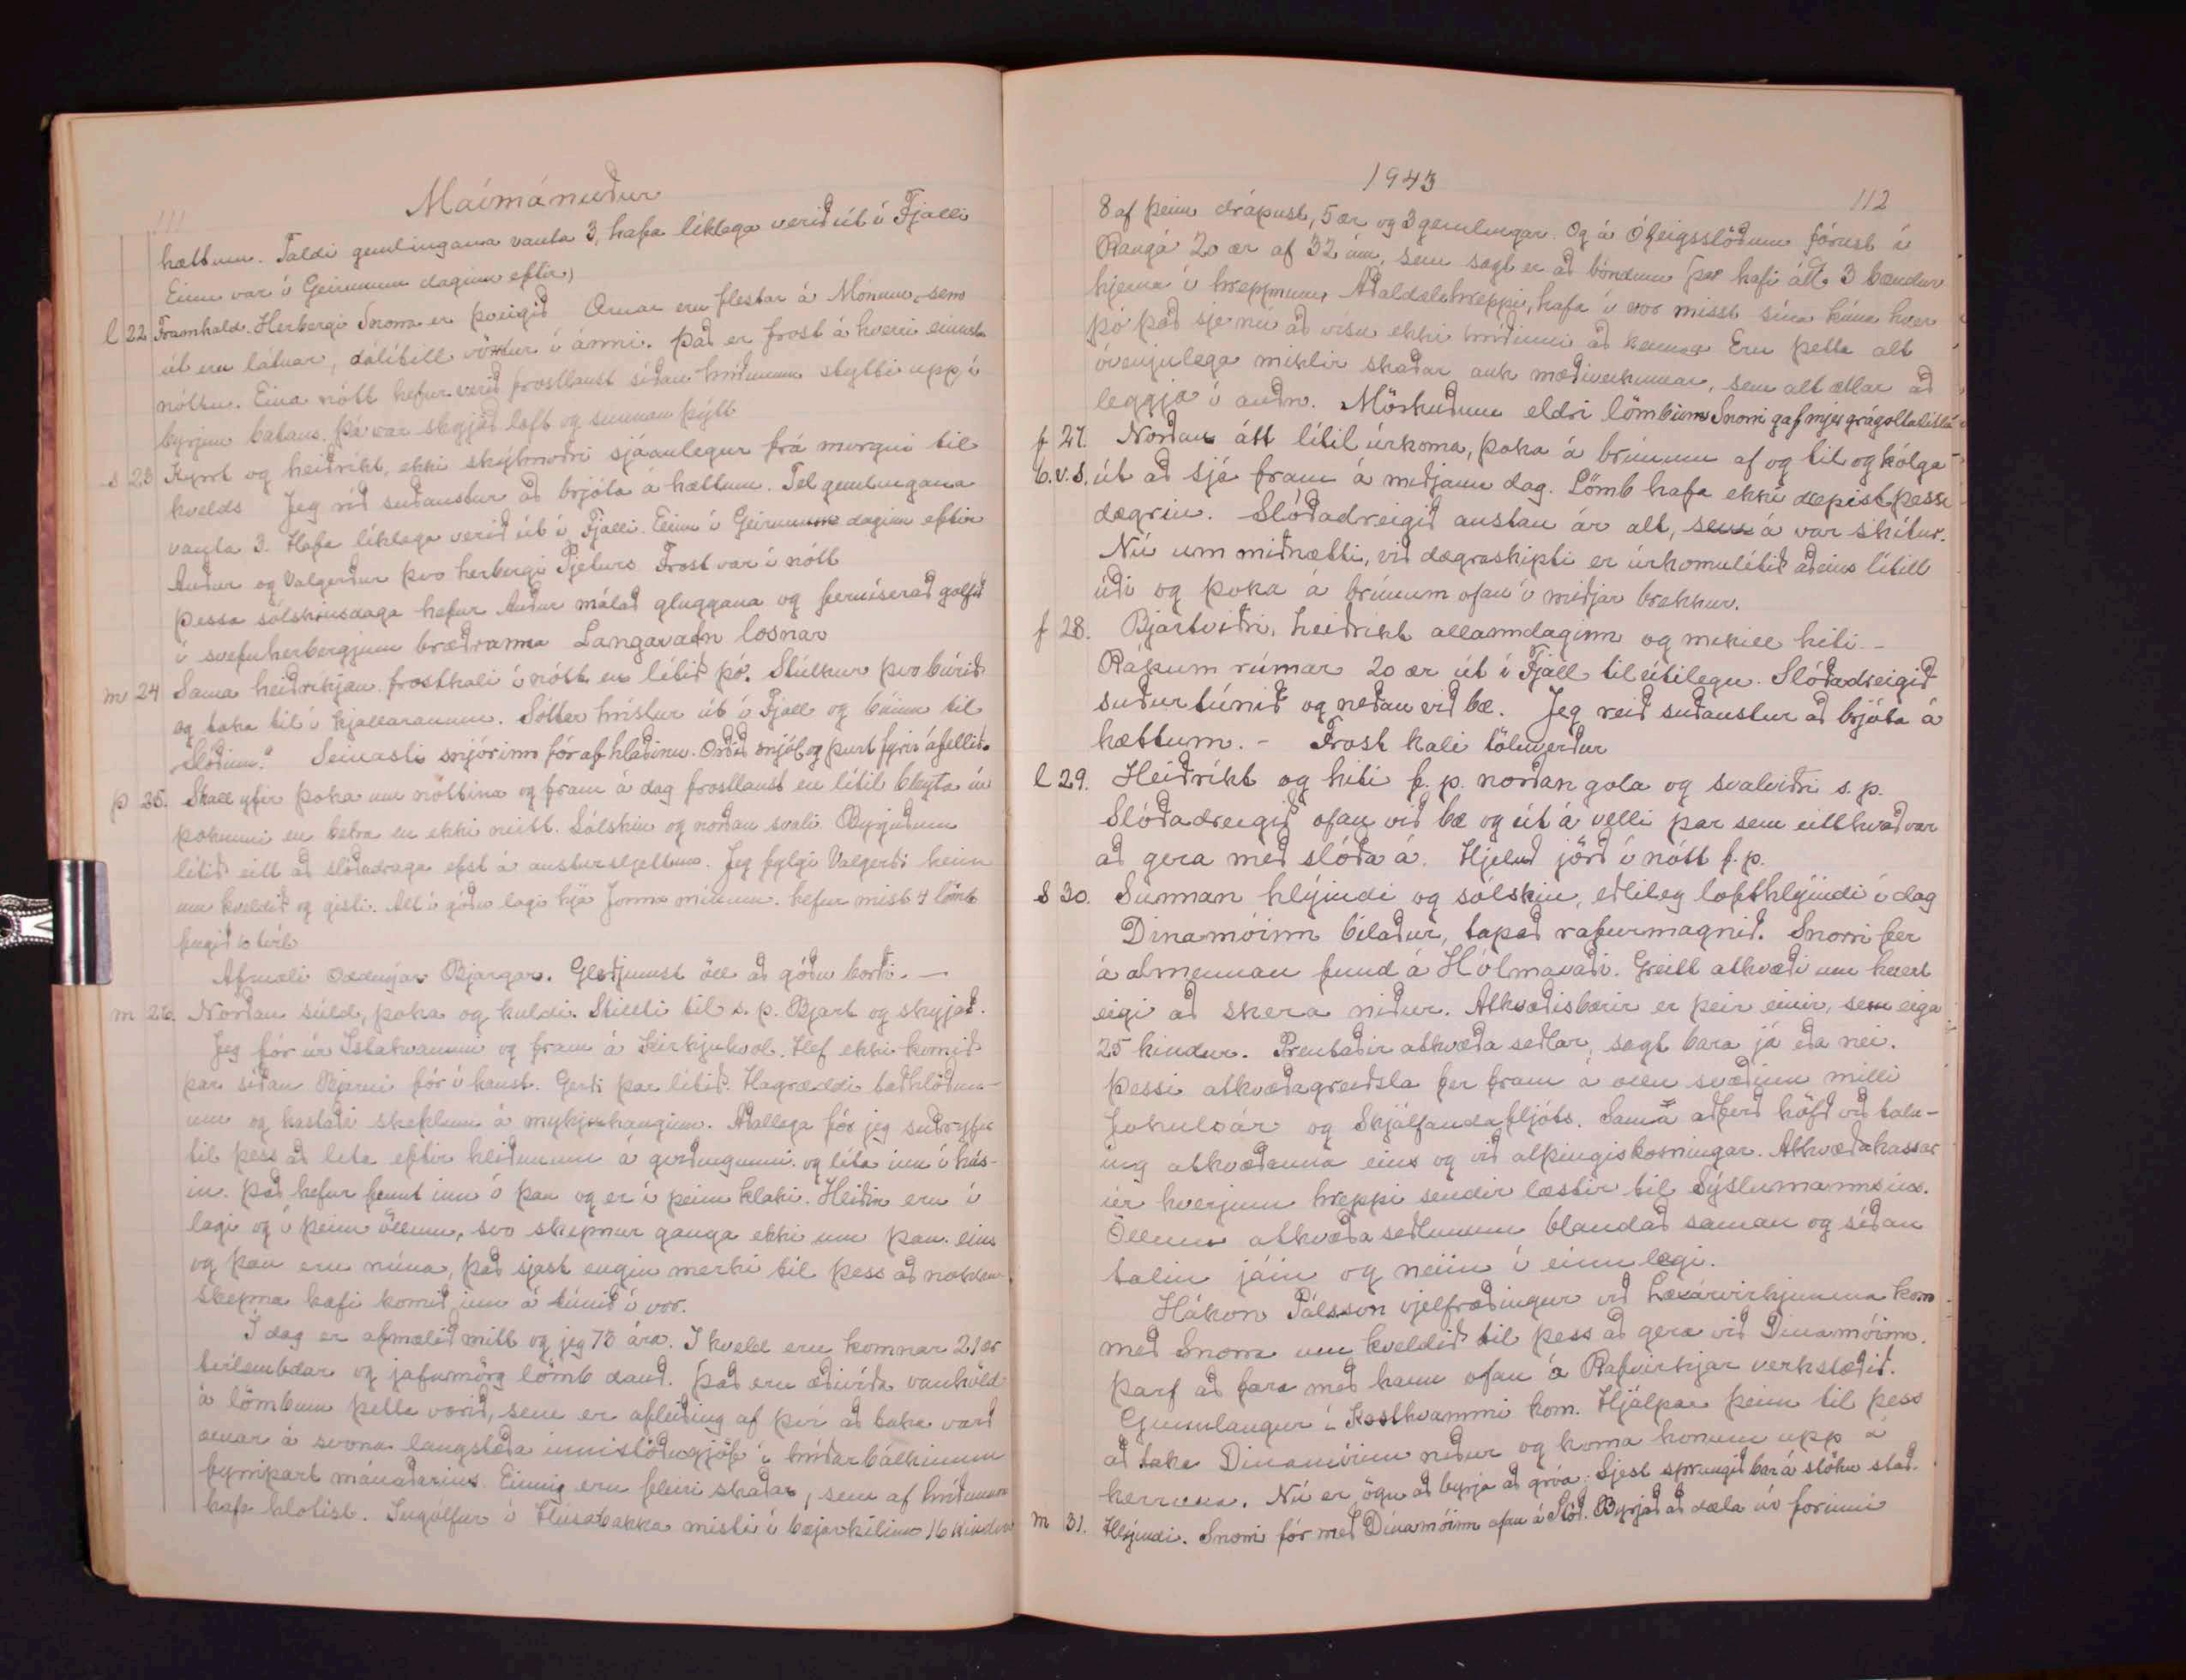 111
Maímánuður
hættum. Taldi gemlingana vanta 3, hafa líklega verið út í Fjalli
Einn var í Geirunum daginn eftir)
l 22 Framhald. Herbergi Snorra er þveigið Ærnar eru flestar á Mónum, sem
út eru látnar, dálítill vöxtur í ánni. Það er frost á hverri einustu
nóttu. Eina nótt hefur verið frostlaust síðan hríðunum stytti upp í
byrjun batans. Þá var skyjað loft og sunnan þýtt
s 23 Kyrrt og heiðríkt, ekki skýhnoðri sjáanlegur frá morgni til
kvelds Jeg ríð suðaustur að brjóta á hættum. Tel gemlingana
vanta 3. Hafa líklega verið út í Fjalli. Einn í Geirunum daginn eftir
Auður og Valgerður þvo herbergi Pjeturs Frost var í nótt
Þessa sólskinsdaga hefur Auður málað gluggana og ferniserað golfið
í svefnherbergjum bræðranna Langavatn losnar
m 24 Sama heiðrikjan frostkali í nótt en lítið þó. Stúlkur þvo búrið
og taka til í kjallaranum. Sóttar hríslur út í Fjall og búinn til
„Slóðinn." Seinasti snjórinn fór af hlaðinu. Orðið snjól og þurt fyrir áfellið.
þ 25. Skall yfir þoka um nóttina og fram á dag frostlaust en lítil bleyta úr
þokunni en betra en ekki neitt. Sólskin og norðan svali. Byrjuðum
lítið eitt að slóðadraga efst á austursljettum. Jeg fylgi Valgerði heim
um kveldið og gisti. Alt í góðu lagi hjá Jónma mínum. hefur mist 4 lömb
fengið 10 tvíl.
Afmæli Oddnýjar Bjargar. Gleðjumst öll að góðu borði. —
m 26. Norðan súld, þoka og kuldi. Stillti til s. p. Bjart og skyjað.
Jeg fór úr Ystahvammi og fram á Kirkjuhvol. Hef ekki komið
þar síðan Bjarni fór í haust. Gerði þar lítið. Hagræddi taðhlöðun-
um og kastaði skeklum á mykjuhauginn. Aðallega fór jeg suðryfir
til þess að líta eftir hliðunum á girðingunni og líta inn í hús-
in. Það hefur fennt inn í þau og er í þeim klaki. Hliðin eru í
lagi og í þeim öllum, svo skepnur ganga ekki um þau eins
og þau eru núna, það sjást engin merki til þess að nokkur
skepna hafi komið inn á túnið í vor.
Í dag er afmælið mitt og jeg 73 ára. Í kveld eru komnar 21 ær
tvílembdar og jafnmörg lömb dauð. Það eru æðivíða vanhöld
á lömbum þetta vorið, sem er afleiðing af því að taka varð
ærnar á svona langstæða innistöðugjöf í hríðarbálkinum
fyrripart mánaðarins. Einnig eru fleiri skaðar, sem af hríðunum
hafa hlotist. Ingólfur í Húsabakka misti í bæjarkílinn 16 kindur
1943
112
8 af þeim drápust, 5 ær og 3 gemlingar. Og á Ófeigsstöðum fórust í
Rangá 20 ær af 32 ám, sem sagt er að bóndinn þar hafi átt. 3 bændur
hjerna í hreppnum, Aðaldælahreppi, hafa í vor misst sína kúna hver
þó það sje nú að vísu ekki hríðinni að kenna. Eru þetta alt
óvenjulega miklir skaðar auk mæðiveikinnar, sem alt ætlar að
leggja í auðn. Mörkuðum eldri lömbin. Snorri gaf mjer grágolta
f 27. Norðan átt lítil úrkoma, þoka á brúnum af og til og kólga
b.v.s. út að sjá fram á miðjann dag. Lömb hafa ekki dæpist þessi
dægrin. Slóðadreigið austan ár alt, sem á var skítur.
Nú um miðnætti, við dægraskipti er úrkomulítið aðeins lítill
úði og þoka á brúnum ofan í miðjar brekkur.
f 28. Bjartviðri, heiðríkt allanndaginn og mikill hiti. —
Rákum rúmar 20 ær út í Fjall til útilegu. Slóðadreigið
suðurtúnið og neðan við bæ. Jeg reið suðaustur að brjóta á
hættum. - Frost kali tölwerður
l 29. Heiðríkt og hiti f. p. norðan gola og svalviðri s. p.
Slóðadreigið ofan við bæ og út á velli þar sem eitthvað var
að gera með slóða á. Hjeluð jörð í nótt f. p.
s 30. Sunnan hlýindi og sólskin, eðlileg lofthlýindi í dag
Dínamóinn bilaður, tapað rafurmagnið. Snorri fer
á almennan fund á Hólmavaði. Greitt atkvæði um hvert
eigi að skera niður. Atkvæðisbærir er þeir einir, sem eiga
25 kindur. Prentaðir atkvæða seðlar, sagt bara já eða nei.
Þessi atkvæðagreiðsla fer fram á öllu svæðinu milli
Jökulsár og Skjálfandafljóts. Sama aðferð höfð við taln-
ing atkvæðanna eins og við alþingiskosningar. Atkvæðakassar
úr hverjum hreppi sendir læstir til Sýslumannsins.
Öllum atkvæðaseðlunum blandað saman og síðan
talin jáin og neiin í einu lagi.
Hákon Pálsson vjelfræðingur við Laxárvirkjunina kom
með Snorra um kveldið til þess að gera við Dinamóinn.
Þarf að fara með hann ofan á Rafvirkjar verkstæðið.
Gunnlaugur í Kasthvammi kom. Hjálpar þeim til þess
að taka Dínamóinn niður og koma honum upp á
kerruna. Nú er ögn að byrja að gróa. Sjest sprungið bar á stöku stað.
m 31. Hlýindi. Snorri fór með Dínamóinn ofan á Stöð. Byrjað að dæla úr forinni